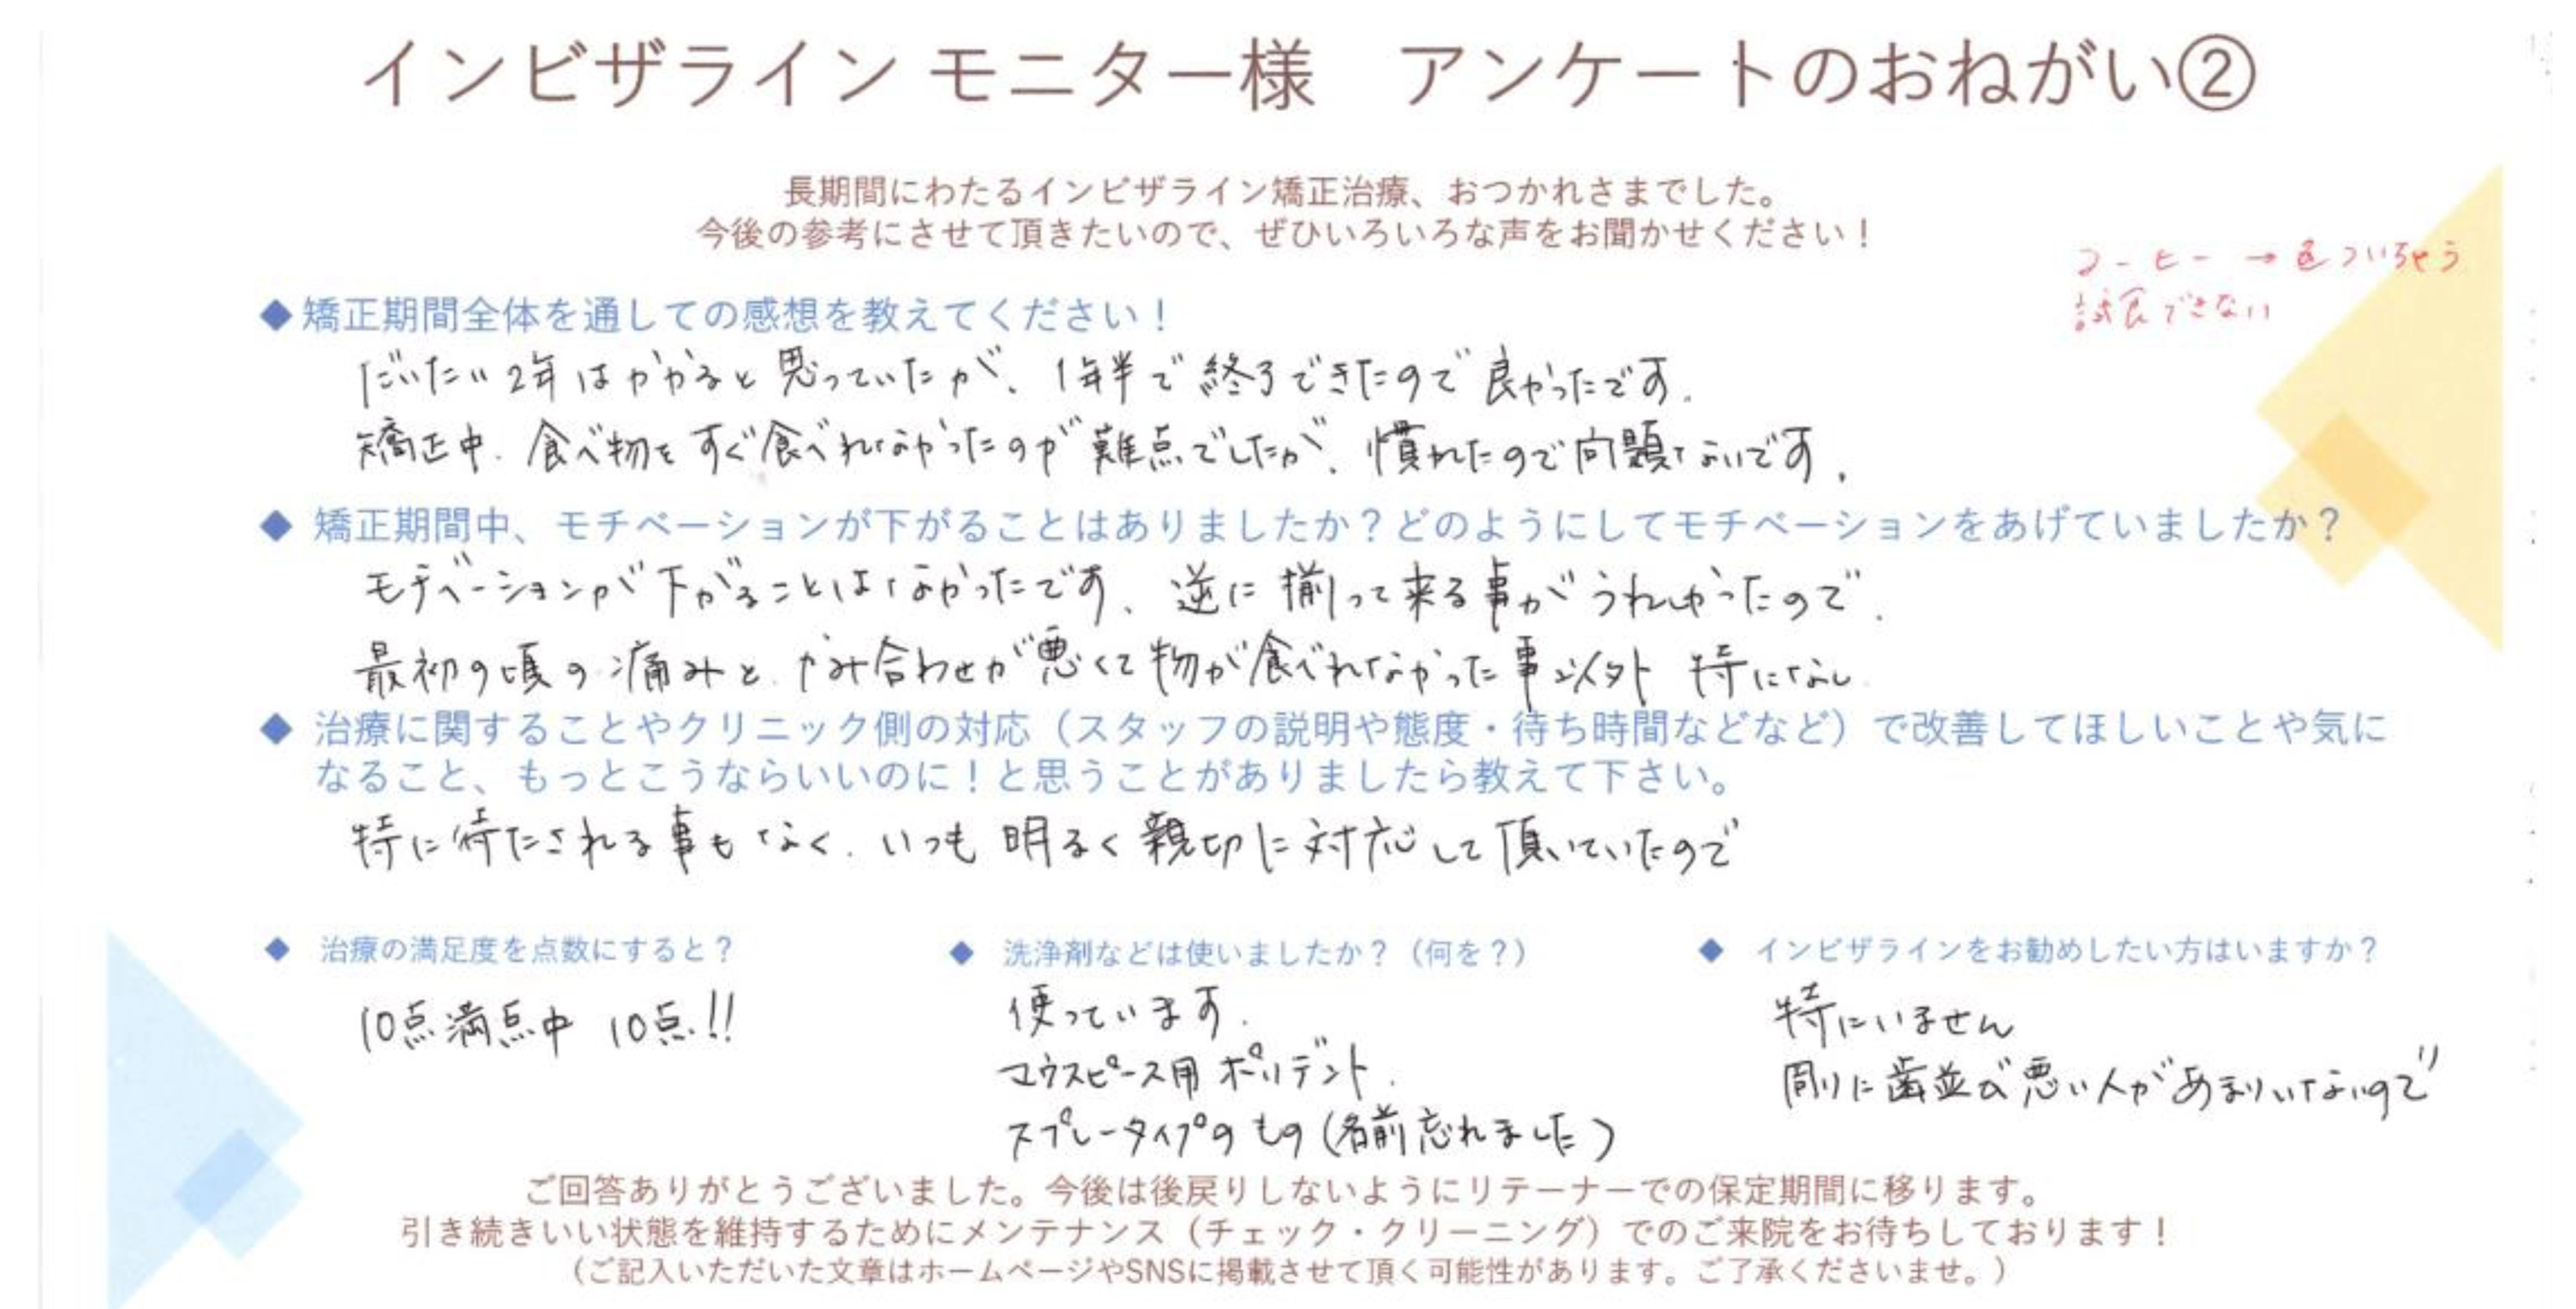 インビザライン モニター様　アンケートのおねがい②
長期間にわたるインビザライン矯正治療、おつかれさまでした。
今後の参考にさせて頂きたいので、ぜひいろいろな声をお聞かせください！
コーヒー → 色ついちゃう
試食できない
◆ 矯正期間全体を通しての感想を教えてください！
だいたい2年はかかると思っていたが、1年半で終了できたので良かったです。
矯正中、食べ物をすぐ食べれなかったのが難点でしたが、慣れたので問題ないです。
◆ 矯正期間中、モチベーションが下がることはありましたか？どのようにしてモチベーションをあげていましたか？
モチベーションが下がることはなかったです、逆に揃って来る事がうれしかったので。
最初の頃の痛みと、かみ合わせが悪くて物が食べれなかった事以外 特になし
◆ 治療に関することやクリニック側の対応（スタッフの説明や態度・待ち時間などなど）で改善してほしいことや気に
なること、もっとこうならいいのに！と思うことがありましたら教えて下さい。
特に待たされる事もなく、いつも明るく親切に対応して頂いていたので
◆ 治療の満足度を点数にすると？
10点満点中 10点!!
◆ 洗浄剤などは使いましたか？（何を？）
使っています。
マウスピース用ポリデント、
スプレータイプのもの（名前忘れました）
◆ インビザラインをお勧めしたい方はいますか？
特にいません
周りに歯並び悪い人があまりいないので"
ご回答ありがとうございました。今後は後戻りしないようにリテーナーでの保定期間に移ります。
引き続きいい状態を維持するためにメンテナンス（チェック・クリーニング）でのご来院をお待ちしております！
（ご記入いただいた文章はホームページやSNSに掲載させて頂く可能性があります。ご了承くださいませ。）